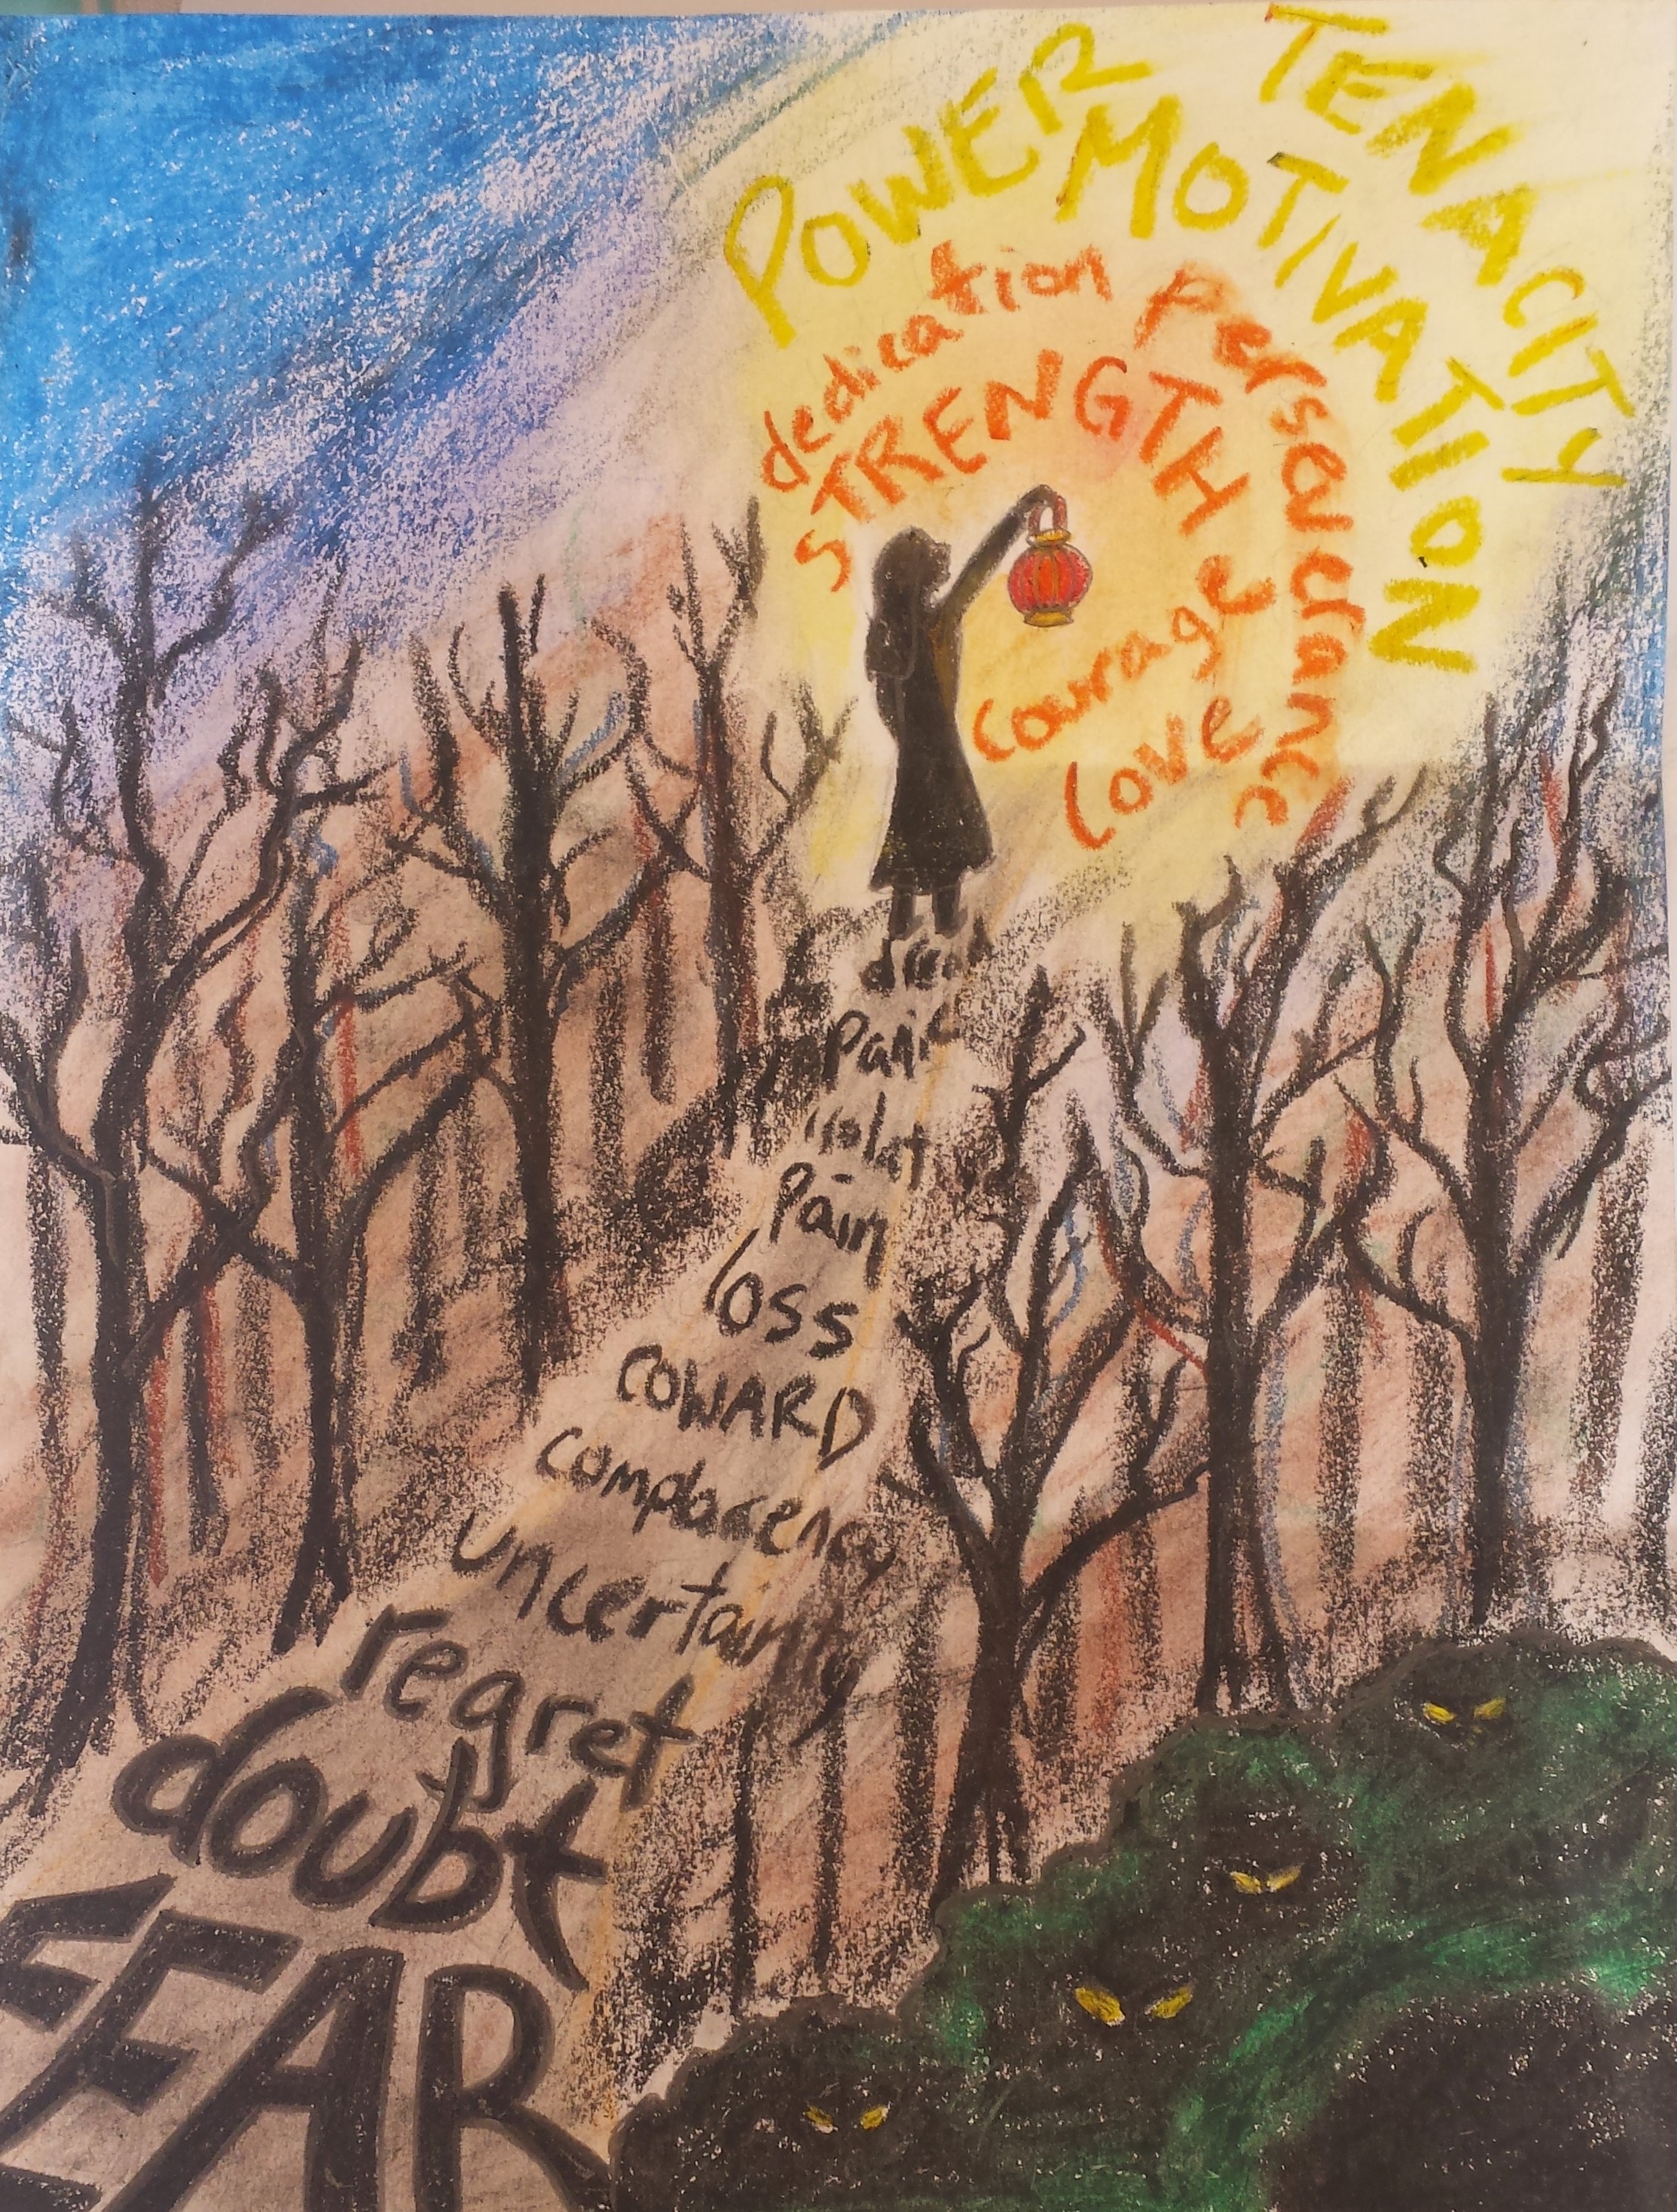 TENACITY
POWER
MOTIVATION
dedication perseverance
STRENGTH
courage
love
Panic
Pain
loss
COWARD
complacency
uncertainty
regret
doubt
FEAR